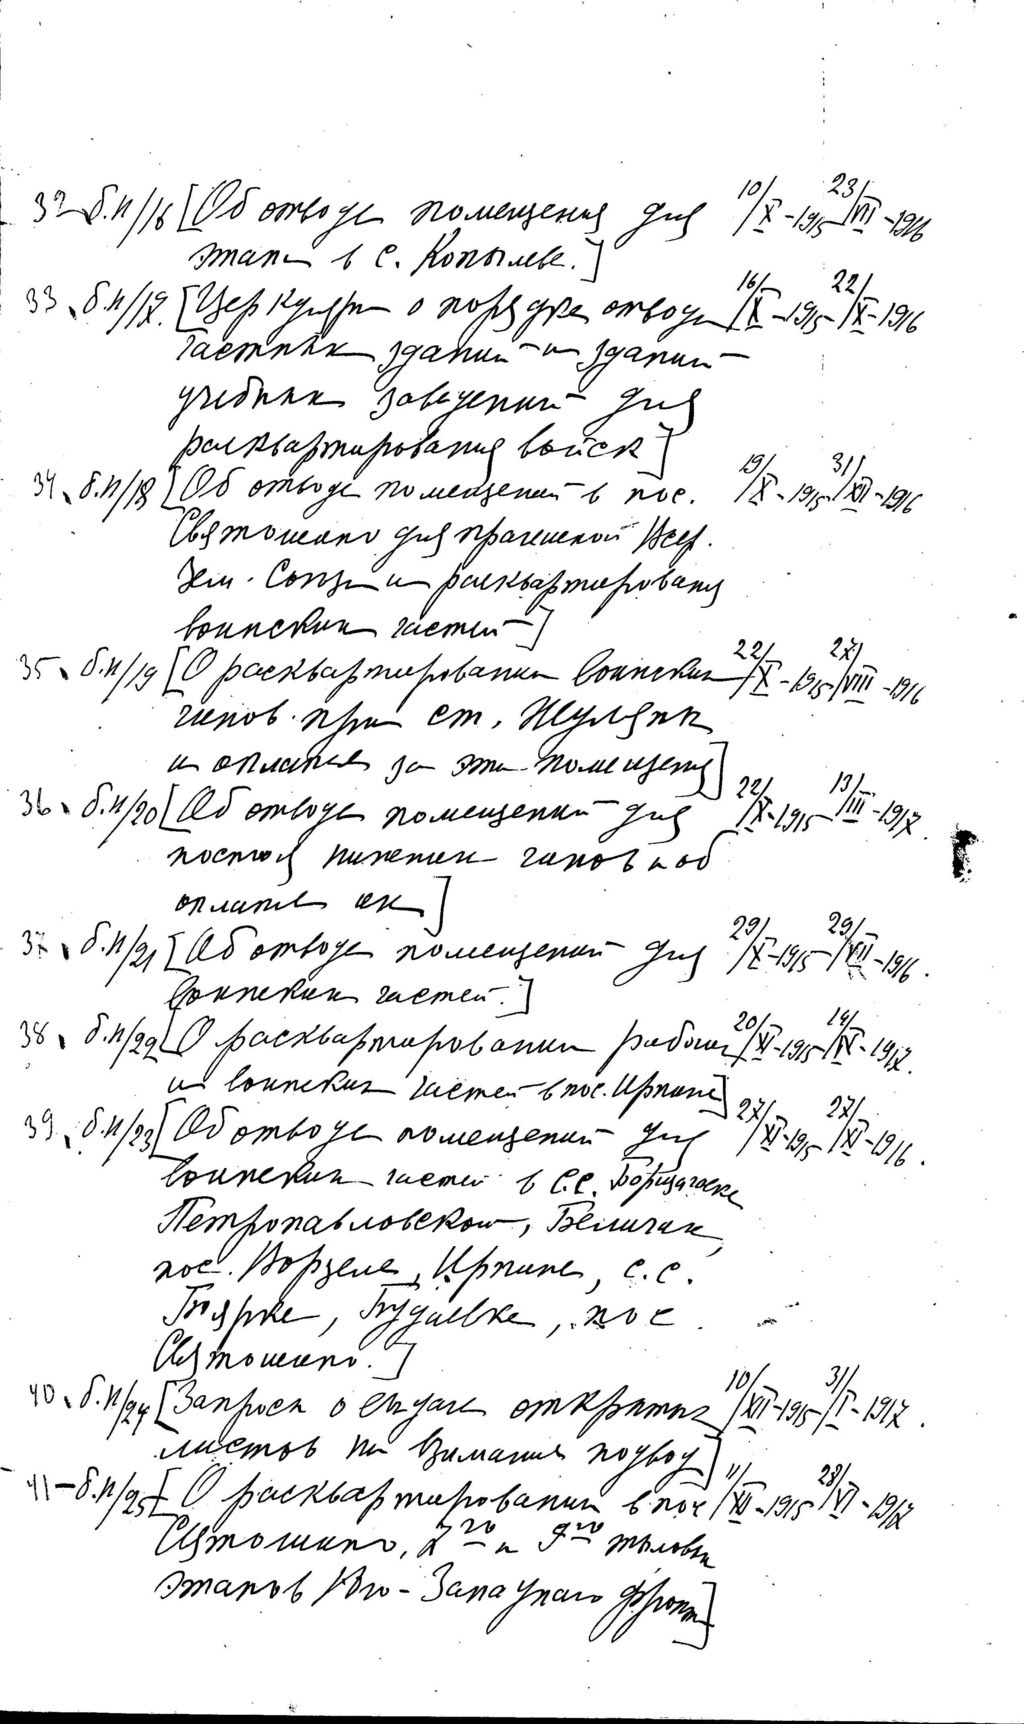 32 б.н/16 [Об отводе помещения для 10/X-1915 23/VII-1916
этапа в с. Копылове.]
33. б.н/17. [Циркуляры о порядке отвода 16/X-1915 22/IX-1916
частных зданий и зданий
учебных заведений для
расквартирования войск]
34. б.н/18 [Об отводе помещений в пос. 19/X-1915 31/XII-1916
Святошино для прачешной Всер.
Зем. Союза и расквартирования
воинских частей]
35. б.н/19 [О расквартировании воинских 22/X-1915 27/VIII-1916
чинов при ст. Жуляны
и оплате за эти помещения]
36. б.н/20 [Об отводе помещений для 22/X-1915 13/III-1917.
постоя нижних чинов и об
оплате их]
37. б.н/21 [Об отводе помещений для 29/X-1915 29/VII-1916.
воинских частей.]
38. б.н/22 [О расквартировании рабочих 20/XI-1915 14/IV-1917.
и воинских частей в пос. Ирпине]
39. б.н/23 [Об отводе помещений для 27/XI-1915 27/XI-1916.
воинских частей в с.с. Борщаговке
Петропавловской, Беличах,
пос. Ворзеле, Ирпине, с.с.
Боярке, Будаевке, пос.
Святошино.]
40. б.н/24 [Запросы о выдаче открытых 10/XII-1915 31/I-1917.
листов на взимание подвод]
41-б.н/25 [О расквартировании в пос 11/XII-1915 28/VI-1917
Святошино, 7го и 9го тыловых
этапов Юго-Западного фронта]